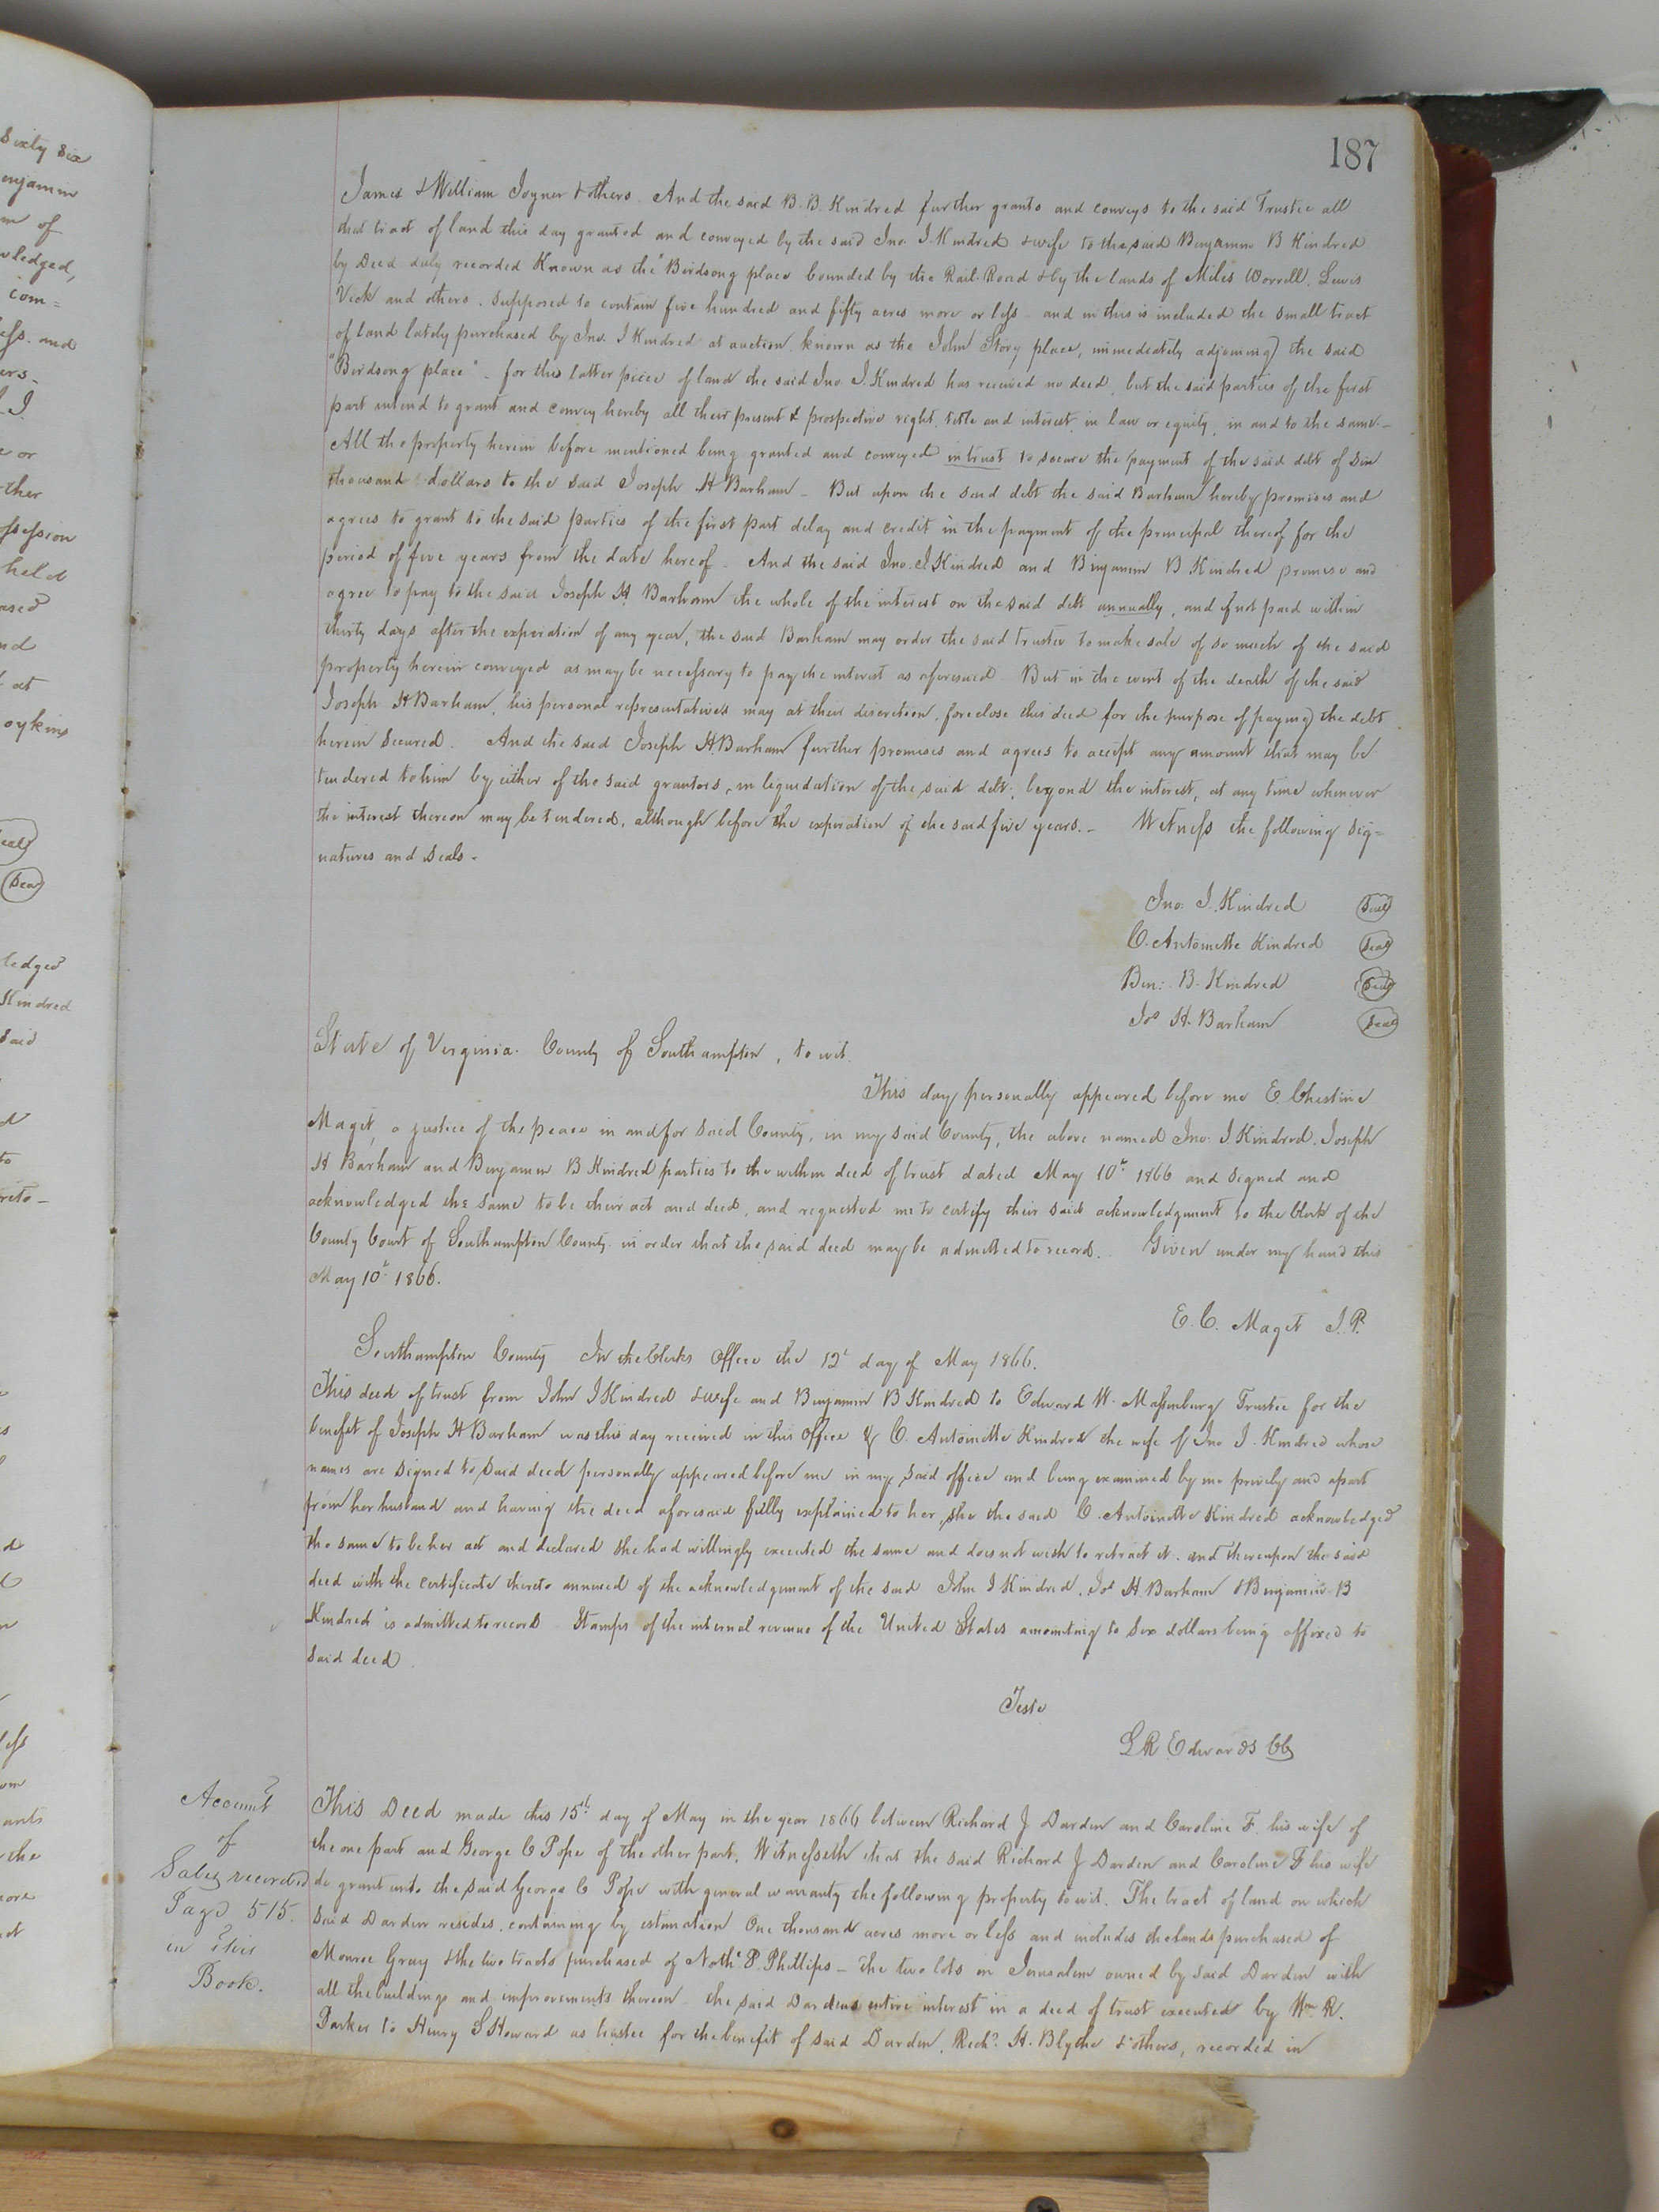 187
James & William Joyner & others. And the said B. B. Kindred further grants and conveys to the said Trustee all
that tract of land this day granted and conveyed by the said Jno. J. Kindred & wife to the said Benjamin B Kindred
by Deed duly recorded Known as the "Birdsong place bounded by the Rail Road & by the lands of Miles Worrell, Lewis
Vick and others. Supposed to contain five hundred and fifty acres more or less - and in this is included the small tract
of land lately purchased by Jno. J Kindred at auction known as the John Story place, immediately adjoining the said
"Birdsong place" - for this latter piece of land the said Jno. J. Kindred has received no deed, but the said parties of the first
part intend to grant and convey hereby all their present & prospective right, title and interest, in law or equity, in and to the same. -
All the property herein before mentioned being granted and conveyed in trust to secure the payment of the said debt of Six
thousand dollars to the said Joseph H Barham - But upon the said debt the said Barham hereby promises and
agrees to grant to the said parties of the first part delay and credit in the payment of the principal thereof for the
period of five years from the date hereof - And the said Jno. J. Kindred and Benjamin B Kindred promise and
agree to pay to the said Joseph H. Barham the whole of the interest on the said debt annually, and if not paid within
thirty days after the expiration of any year, the said Barham may order the said trustee to make sale of so much of the said
property herein conveyed as may be necessary to pay the interest as aforesaid But in the event of the death of the said
Joseph H Barham, his personal representatives may at their discretion, foreclose this deed for the purpose of paying the debt
herein secured. And the said Joseph H. Barham further promises and agrees to accept any amount that may be
tendered to him by either of the said grantors, in liquidation of the said debt, beyond the interest, at any time whenever
the interest thereon may be tendered, although before the expiration of the said five years. - Witness the following sig=
natures and seals.
Jno. J. Kindred Seal
C. Antoinette Kindred Seal
Ben: B. Kindred Seal
Jos H. Barham Seal
State of Virginia. County of Southampton, to wit.
This day personally appeared before me E. Chestine
Maget, a justice of the peace in and for said County, in my said County, the above named Jno. J Kindred. Joseph
H Barham and Benjamin B Kindred parties to the within deed of trust dated May 10th 1866 and signed and
acknowledged the same to be their act and deed, and requested me to certify their said acknowledgment to the Clerk of the
County Court of Southampton County in order that the said deed may be admitted to record. Given under my hand this
May 10th 1866.
E. C. Maget J. P.
Southampton County In the Clerks Office the 12th day of May 1866.
This deed of trust from John J Kindred & wife and Benjamin B Kindred to Edward W. Massenburg Trustee for the
benefit of Joseph H Barham was this day received in this Office & C. Antoinette Kindred the wife of Jno J. Kindred whose
names are signed to said deed personally appeared before me in my said office and being examined by me privily and apart
from her husband and having the deed aforesaid fully explained to her, she the said C. Antoinette Kindred acknowledged
the same to be her act and declared she had willingly executed the same and does not wish to retract it. and thereupon the said
deed with the certificate thereto annexed of the acknowledgement of the said John J Kindred, Jos H. Barham & Benjamin B
Kindred is admitted to record Stamps of the internal revenue of the United States amounting to Six dollars being affixed to
said deed.
Teste
L R Edwards CC
Account
of
Sales recorded
Page 515.
in this
Book.
This Deed made this 15th day of May in the year 1866 between Richard J Darden and Caroline F. his wife of
the one part and George C Pope of the other part, Witnesseth that the said Richard J Darden and Caroline F his wife
do grant unto the said George C Pope with general warranty the following property to wit. The tract of land on which
said Darden resides, containing by estimation One thousand acres more or less and includes the lands purchased of
Monroe Gray & the two tracts purchased of Nathl P. Phillips - The two lots in Jerusalem owned by said Darden with
all the buildings and improvements thereon the said Dardens entire interest in a deed of trust executed by Wm R.
Parker to Henry S Howard as trustee for the benefit of said Darden, Richd H. Blythe & others, recorded in